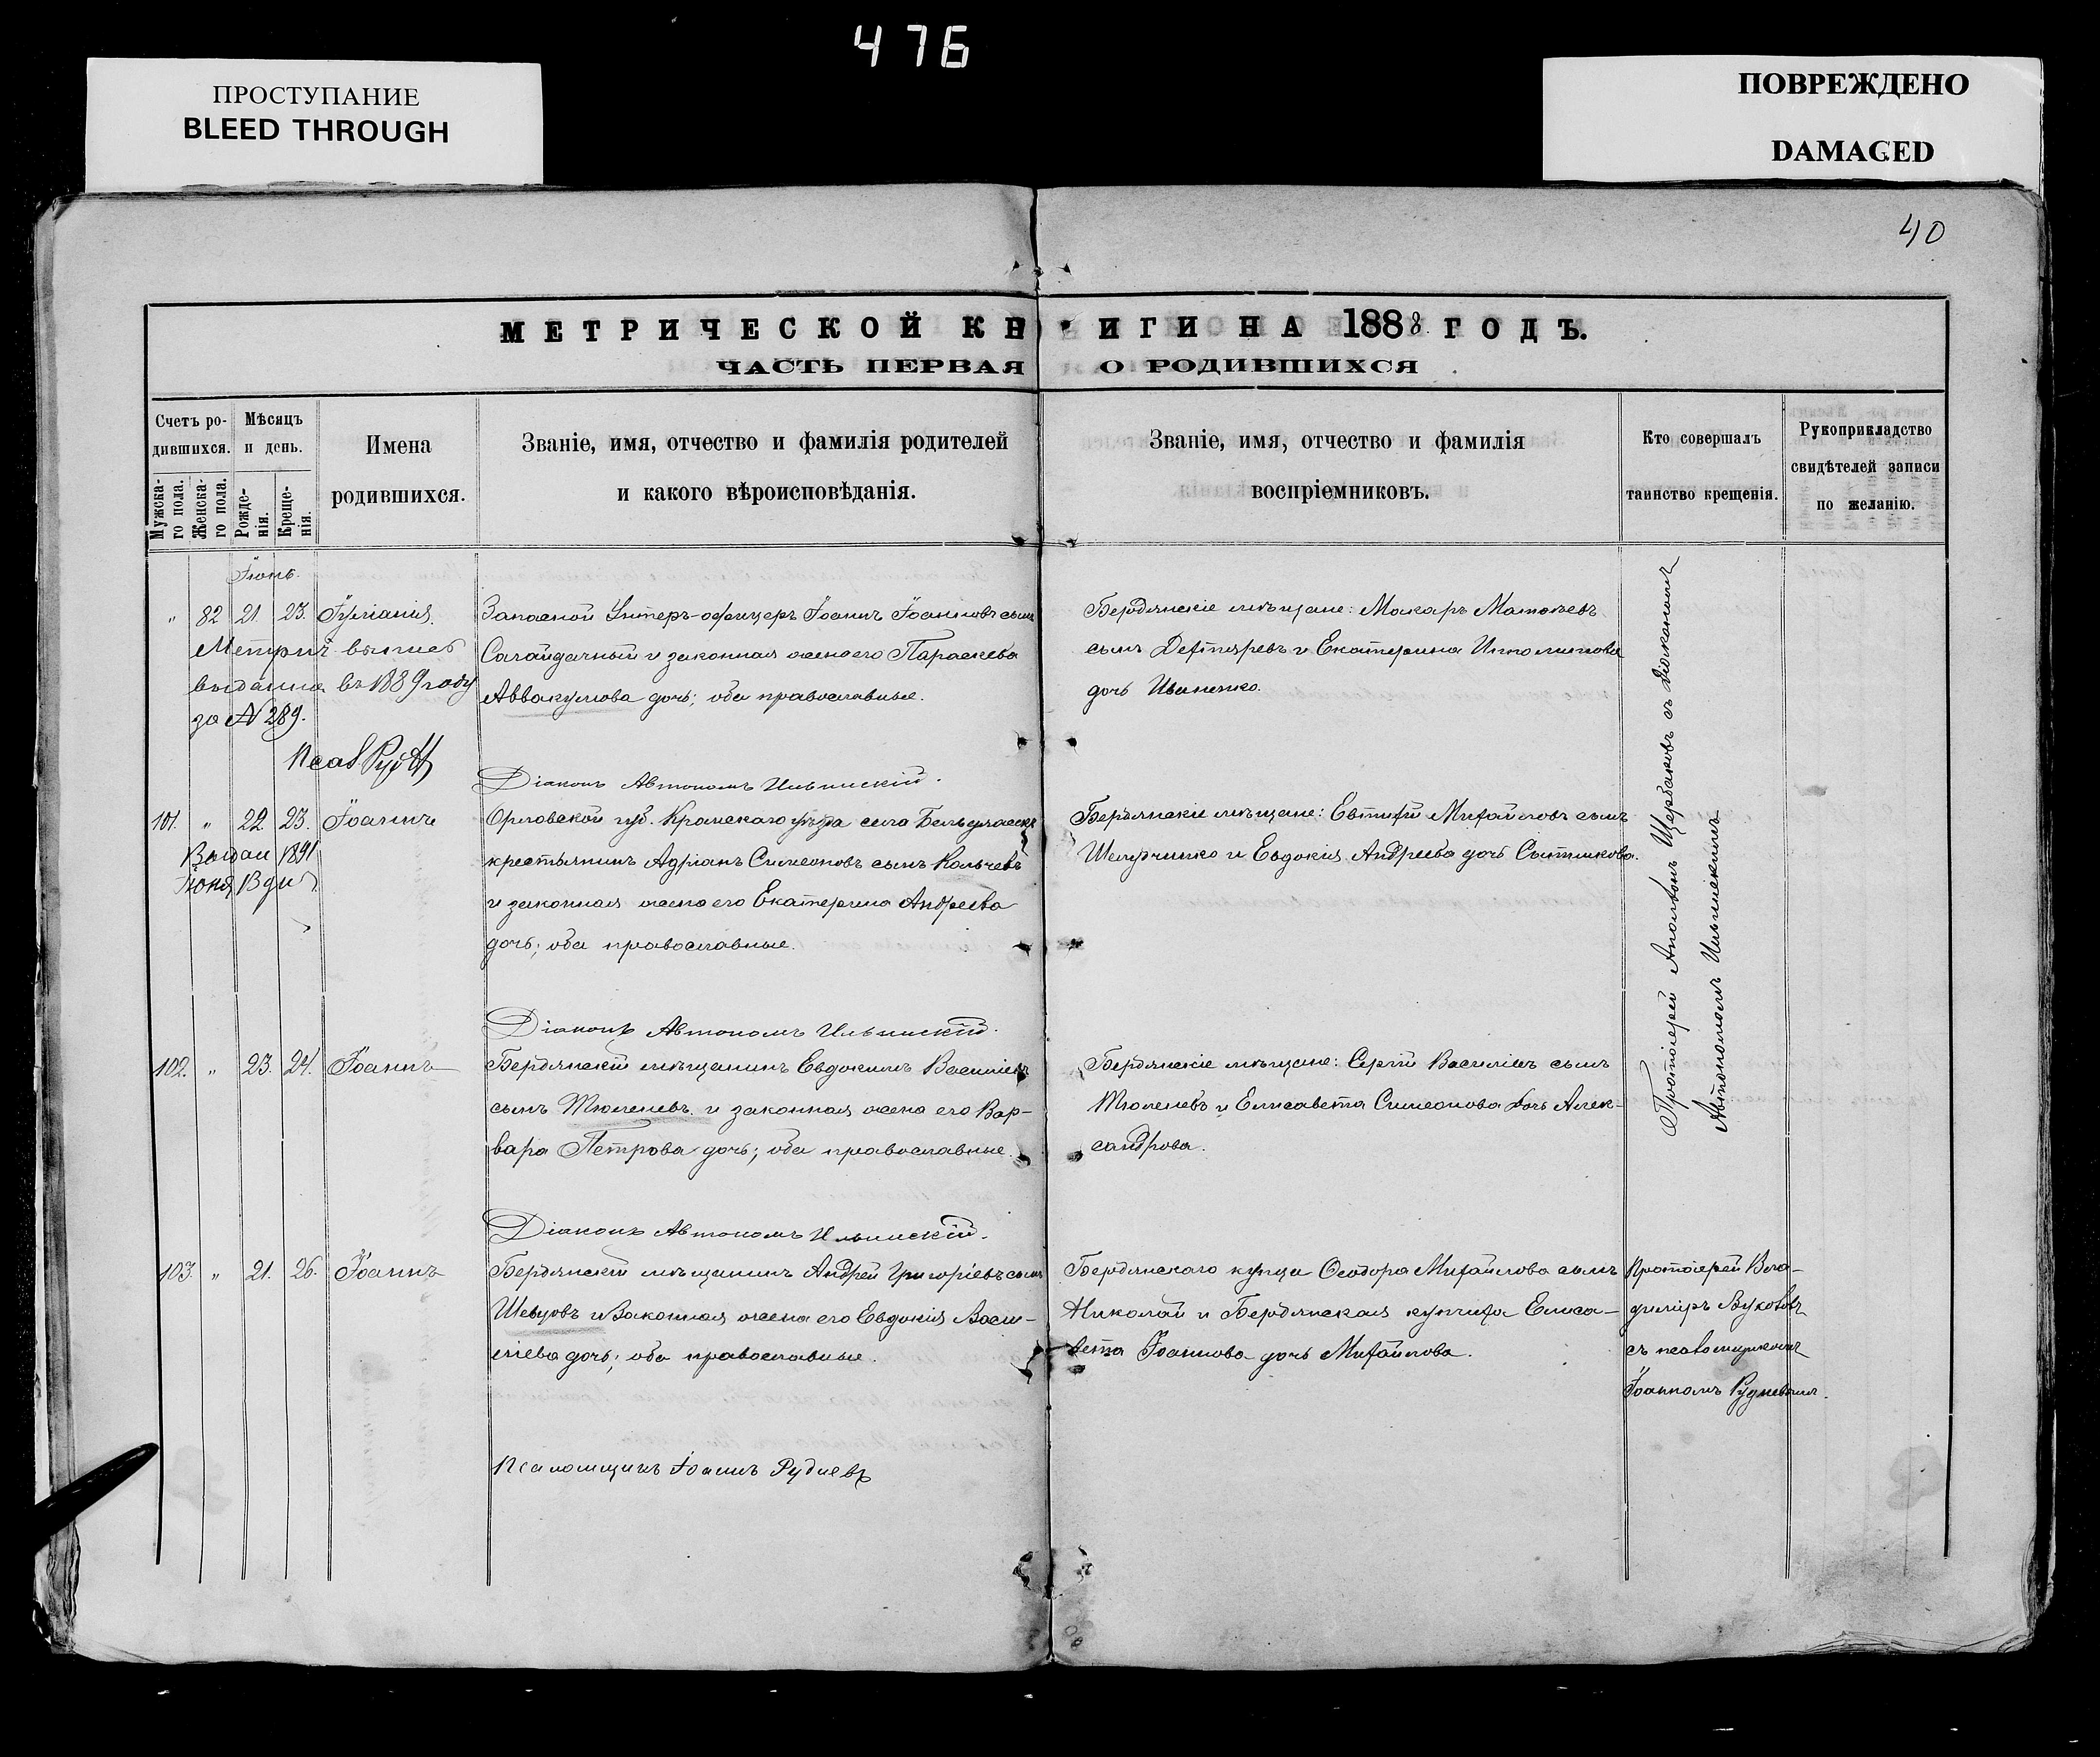 476
ПРОСТУПАНИЕ
BLEED THROUGH
ПОВРЕЖДЕНО
DAMAGED
40
МЕТРИЧЕСКОЙ КНИГИ НА 1888 ГОДЪ.
ЧАСТЬ ПЕРВАЯ О РОДИВШИХСЯ
Счетъ ро-
дившихся.
Мужска-
го пола.
Женска-
го пола.
Мѣсяцъ
и день.
Рожде-
нія.
Креще-
нія.
Имена
родившихся.
Званіе, имя, отчество и фамилія родителей
и какого вѣроисповѣданія.
Званіе, имя, отчество и фамилія
воспріемниковъ.
Кто совершалъ
таинство крещенія.
Рукоприкладство
свидѣтелей записи
по желанію.
Іюнь.
" 82 21. 23. Іуліанія.
Метрич выпись
выдана въ 1889 году
за N 289.
Псал
Запасной Унтеръ-офицеръ Іоаннъ Іоанновъ сынъ
Сагайдачный и законная жена его Параскева
Аввакумова дочь; оба православные.
Бердянскіе мѣщане: Макаръ Матѳеевъ
сынъ Дегтяревъ и Екатерина
дочь Иваненко.
Протоіерей Аполлонъ Щербаковъ съ Діакономъ
Автономомъ Ильинскимъ
Діаконъ Автономъ Ильинскій.
101. " 22. 23. Іоаннъ
Выдан 1891
Іюня 13 дня
Орловской губ. Кромскаго уѣзда села
крестьянинъ Адріанъ Симеоновъ сынъ Колычевъ
и законная жена его Екатерина Андреева
дочь; оба православные.
Бердянскіе мѣщане: Евтихій Михайловъ сынъ
и Евдокія Андреева дочь Сытникова.
Діаконъ Автономъ Ильинскій.
102. " 23. 24. Іоаннъ
Бердянскій мѣщанинъ Евдокимъ Василіевъ
сынъ Тюленевъ и законная жена его Вар-
вара Петрова дочь; оба православные.
Бердянскіе мѣщане: Сергій Василіевъ сынъ
Тюленевъ и Елисавета Симеонова дочь Алек-
сандрова.
Діаконъ Автономъ Ильинскій.
103. " 21. 26. Іоаннъ
Бердянскій мѣщанинъ Андрей Григоріевъ сынъ
Шевцовъ и Законная жена его Евдокія Васи-
ліева дочь; оба православные.
Бердянскаго купца Ѳеодора Михайлова сынъ
Николай и Бердянская купчиха Елиса-
вета Іоаннова дочь Михайлова.
Протоіерей Вла-
диміръ
съ псаломщикомъ
Іоанномъ Рудневымъ.
Псаломщикъ Іоаннъ Рудневъ